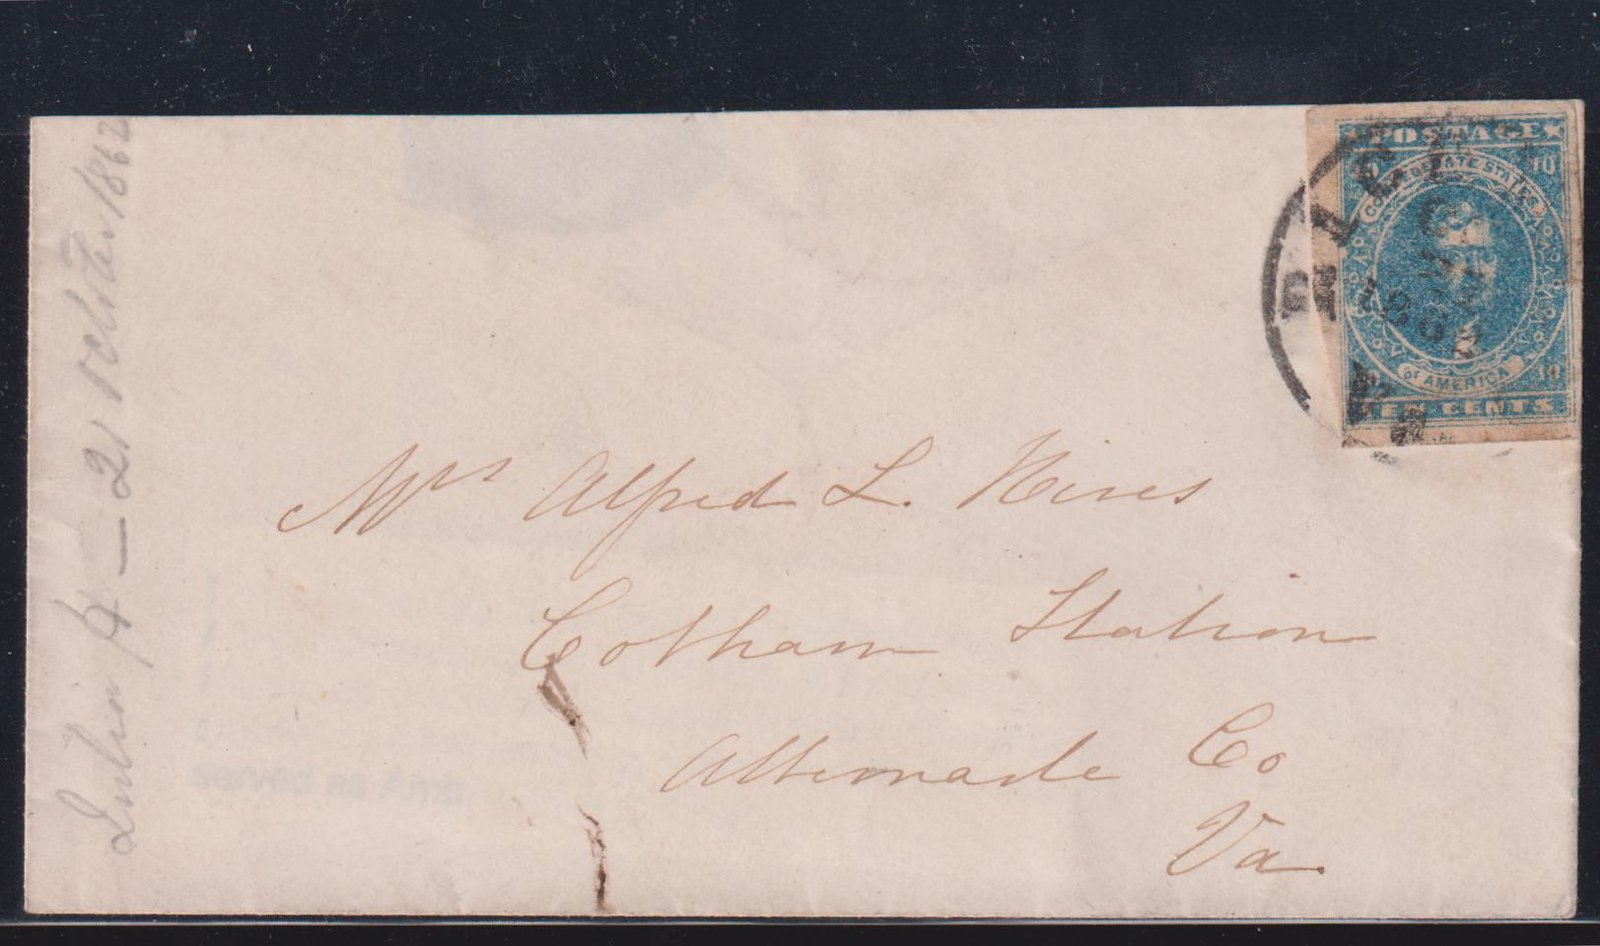 POSTAGE
10 10
CONFEDERATE STATES
of AMERICA
10
TEN CENTS
RICH
Mrs Alfred L. Rives
Cobham Station
Albemarle Co
Va.
21 October 1862
served as Amb